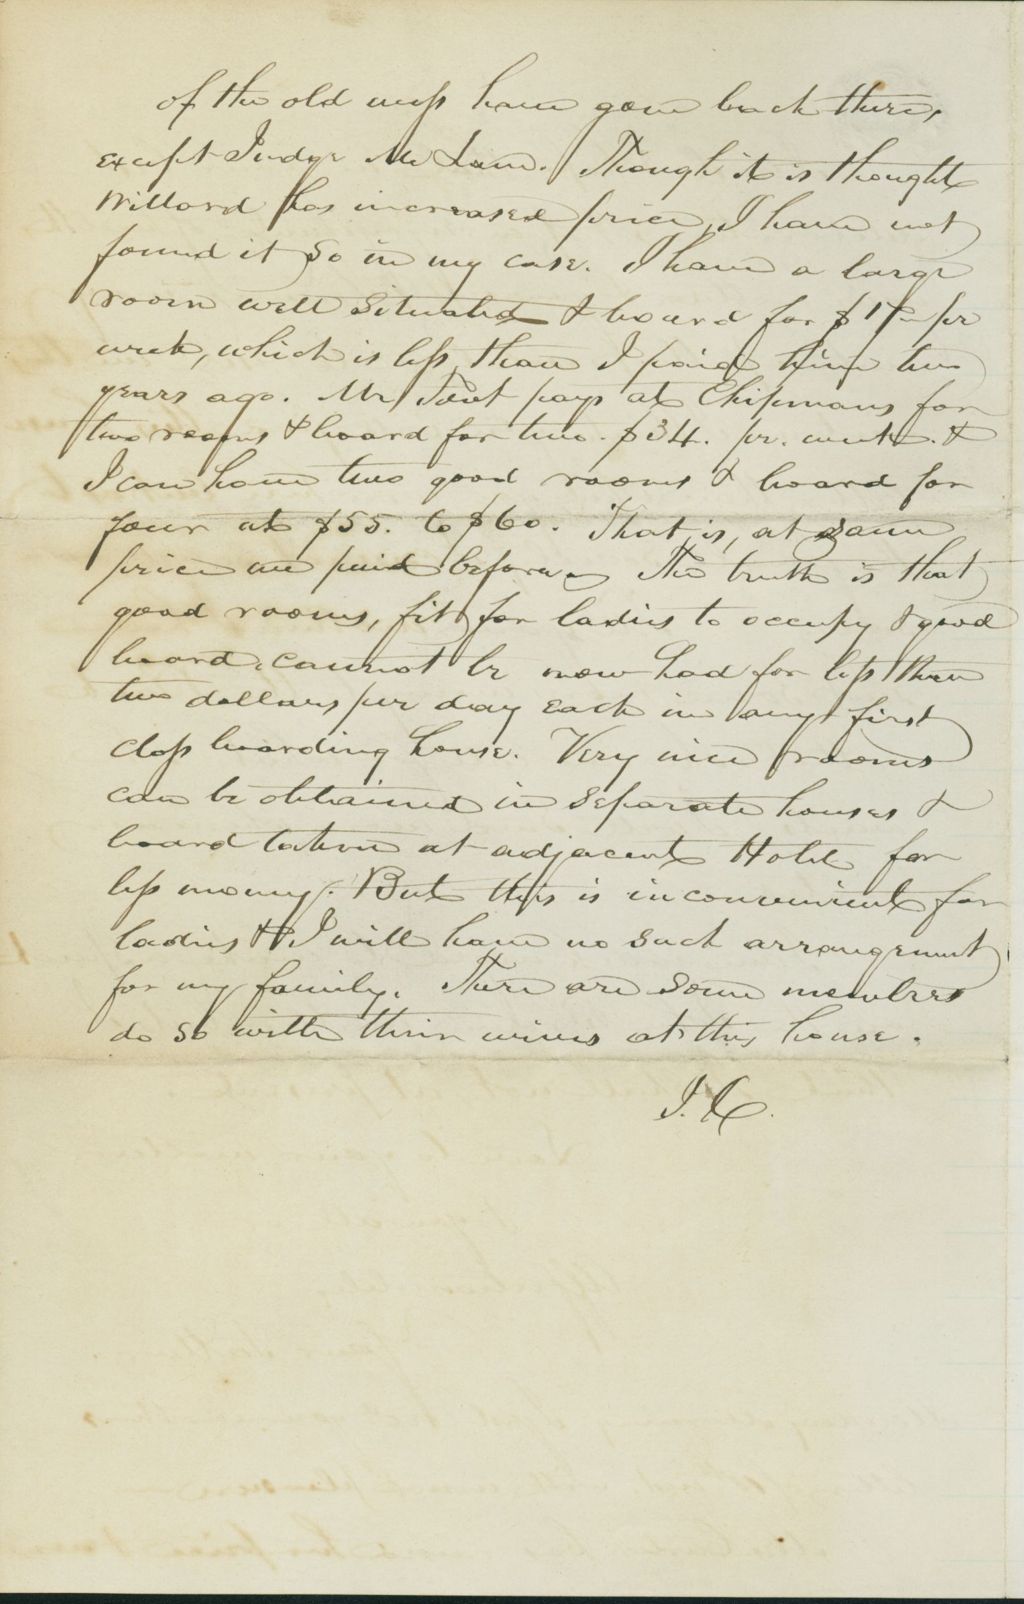 of the old mess have gone back there,
except Judge McLean. Though it is thought
Willard has increased price, I have not
found it so in my case. I have a large
room well situated & board for $17 pr
week, which is less than I paid him two
years ago. Mr Foot pays at Chipmans for
two rooms & board for two. $34. pr. week. &
I can have two good rooms & board for
four at $55. to $60. That is, at same
price we paid before. The truth is that
good rooms, fit for ladies to occupy & good
board, cannot be now had for less than
two dollars per day each in any first
class boarding house. Very nice rooms
can be obtained in separate houses &
board taken at adjacent Hotel for
less money. But this is inconvenient for
ladies & I will have no such arrangement
for my family. There are some members
do so with their wives at this house.
J. C.